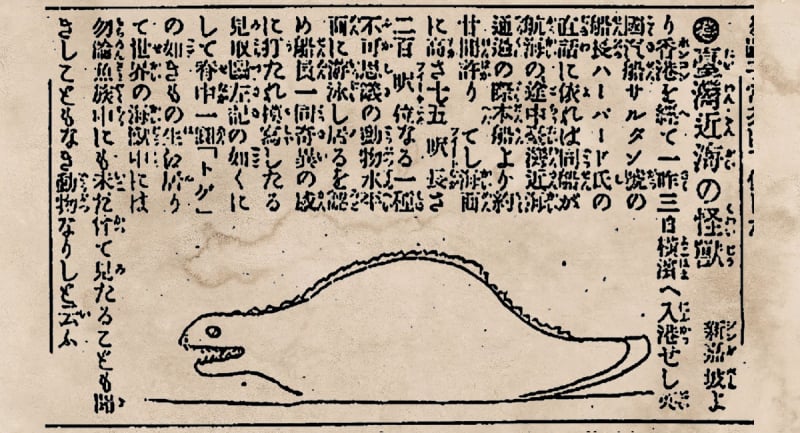 臺灣近海の怪獸 新嘉坡よ
り香港を經て一昨三日横濱へ入港せし英
國汽船サルタン號の
船長ハーバード氏の
直話に依れば同船が
航海の途中臺灣近海
通過の際本船より約
廿間許り てし海面
に高さ七五 呎長さ
二百 呎位なる一種
不可思議の動物水平
面に游泳し居るを認
め船長一同奇異の感
に打たれ模寫したる
見取圖左記の如くに
して脊中一面「トゲ」
の如きもの生じ居り
て世界の海獸中には
勿論魚族中にも未だ曾て見たることも聞
きしこともなき動物なりしと云ふ